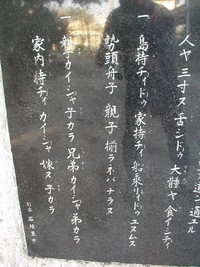 人ヤ 三寸ヌ 舌シドゥ 大胴ヤ 食イシティ
一 島持チィドゥ 家持チィ 船乗リィドゥ ユヌムヌ
勢頭舟子 親子 揃ラネバ ナラヌ
一 親子カイシャ 子カラ 兄弟カイシャ 弟カラ
家内持チィ カイシャ 嫁ヌ 子カラ